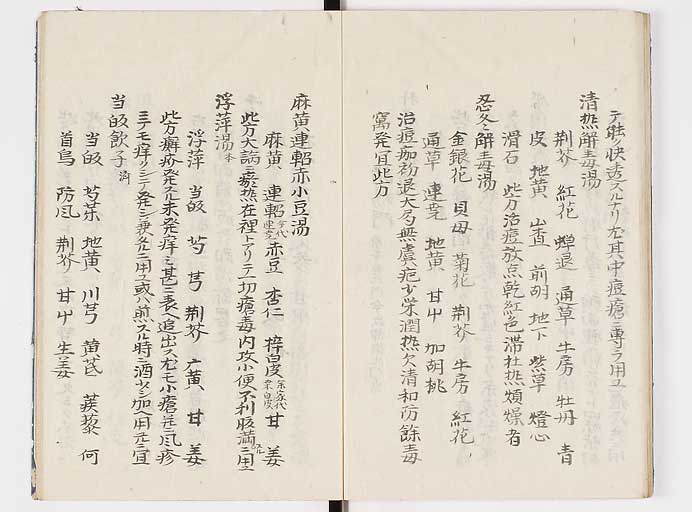 テ能ク快透スルナリ尤其中痘瘡ニ專ラ用ユ
清熱解毒湯
荆芥 紅花 蟬退 通草 牛房 牡丹 青
皮 地黄 山査 前胡 地下 紫草 燈心
滑石 此方治痘放点乾紅色滞壮熱煩燥者
忍冬解毒湯
金銀花 貝母 菊花 荆芥 牛房 紅花
通草 連翹 地黄 甘艸 加胡桃
治痘痂初退大勢無虞疤少栄潤熱欠清和防餘毒
窩発宜此方
麻黄連軺赤小豆湯
麻黄 連軺 赤豆 杏仁 梓白皮 甘 姜
此方大論ニ瘀熱在裡トアリテ一切瘡毒内攻小便不利腹満ニ用ユ
浮萍湯
浮萍 当皈 芍 芎 荆芥 麻黄 甘 姜
此方癬疥発スル未発痒ミ甚ニ表ヘ追出ス尤モ小瘡并ニ風疹
ニテモ痒クシテ発シ兼ルニ用ユ或ハ煎スル時ニ酒少シ加ヘ用尤宜
当皈飲子 済
当皈 芍薬 地黄 川芎 黄芪 蒺藜 何
首烏 防風 荆芥 甘艸 生姜